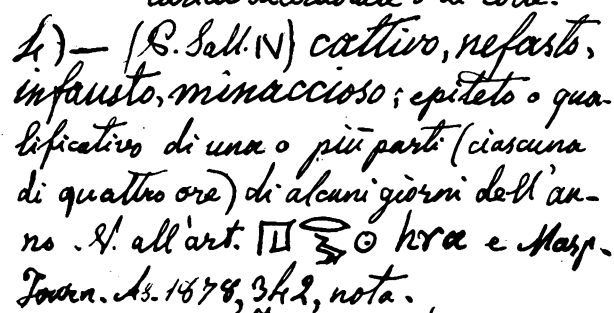 4) — (P. Sall. IV) cattivo, nefasto,
infausto, minaccioso; epiteto o qua-
lificativo di una o più parti (ciascuna
di quattro ore) di alcuni giorni dell'an-
no. V. all'art. hra e Masp.
Journ. As. 1878, 342, nota.